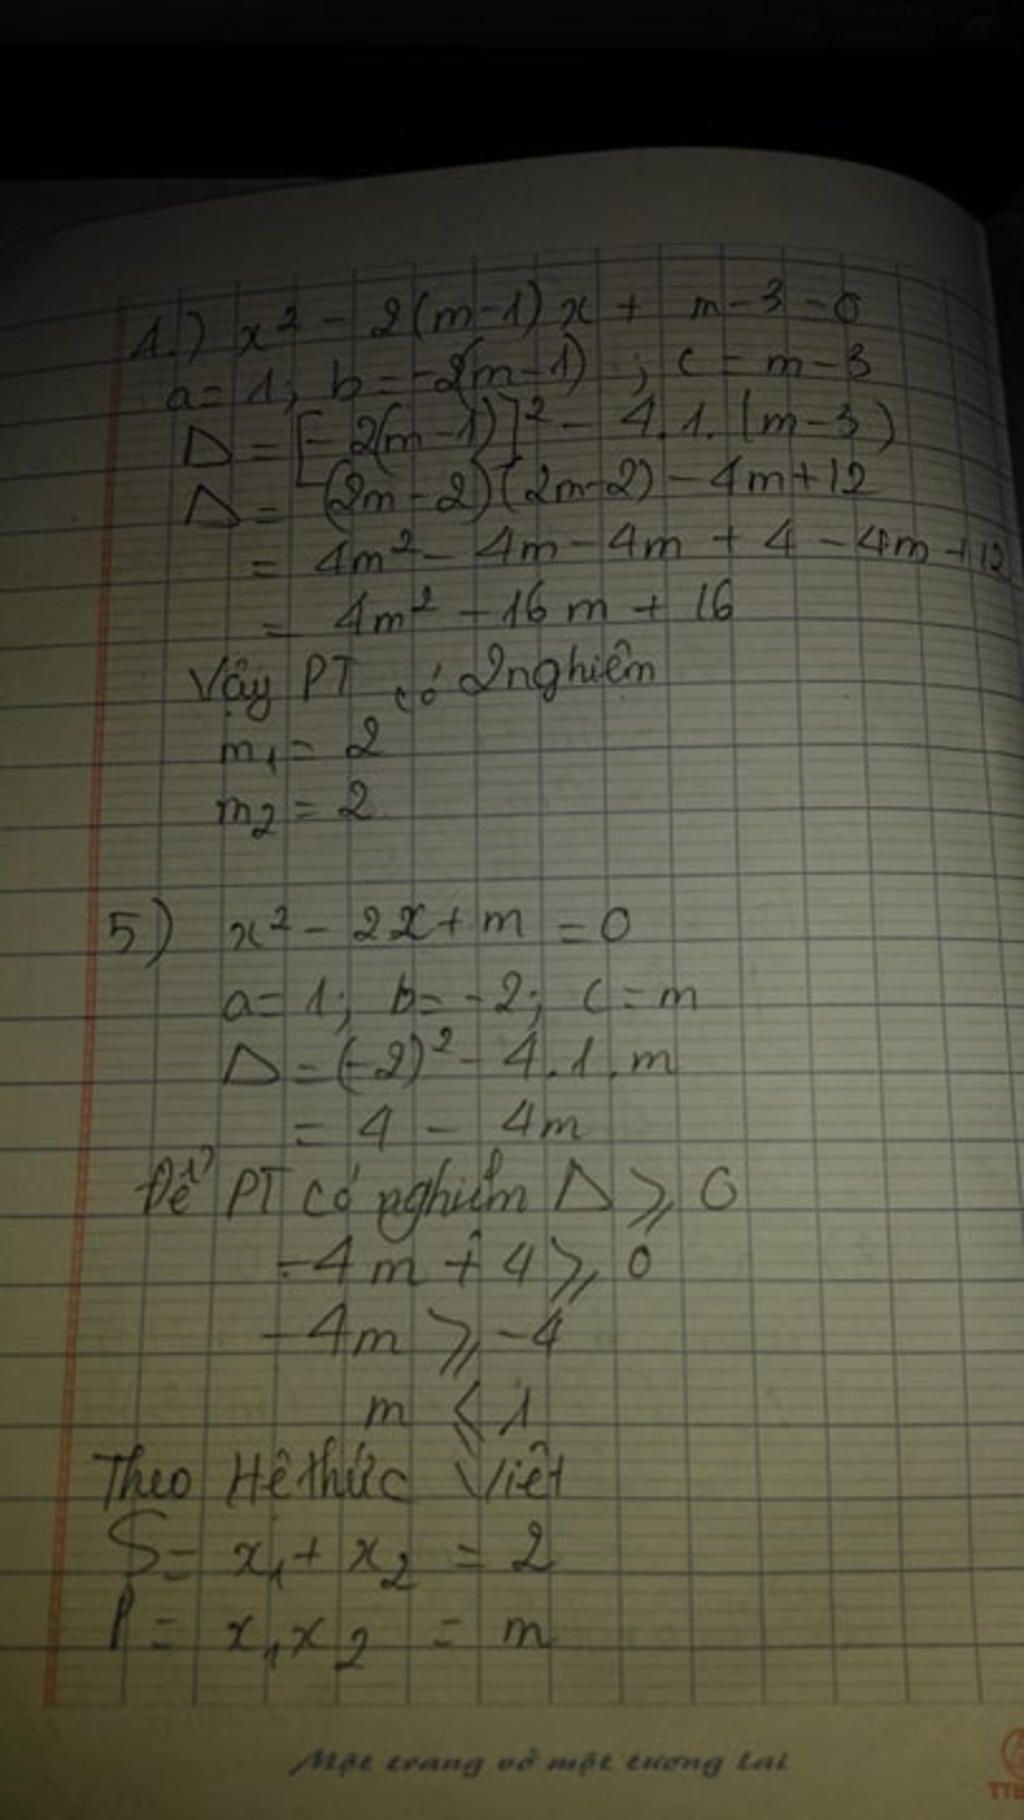 1.) x² - 2(m-1)x + m-3=0
a=1; b=-2(m-1) ; c=m-3
Δ = [-2(m-1)]² - 4.1.(m-3)
Δ = (2m-2)(2m-2)-4m+12
= 4m² - 4m - 4m + 4 - 4m +12
= 4m² - 16m + 16
Vậy PT có 2 nghiệm
m₁ = 2
m₂ = 2
5) x² - 2x + m = 0
a=1; b=-2; c=m
Δ = (-2)² - 4.1.m
= 4 - 4m
Để PT có nghiệm Δ ⩾ 0
-4m + 4 ⩾ 0
-4m ⩾ -4
m ⩽ 1
Theo Hệ thức Việt
S = x₁ + x₂ = 2
P = x₁x₂ = m
Một trang vở một tương lai